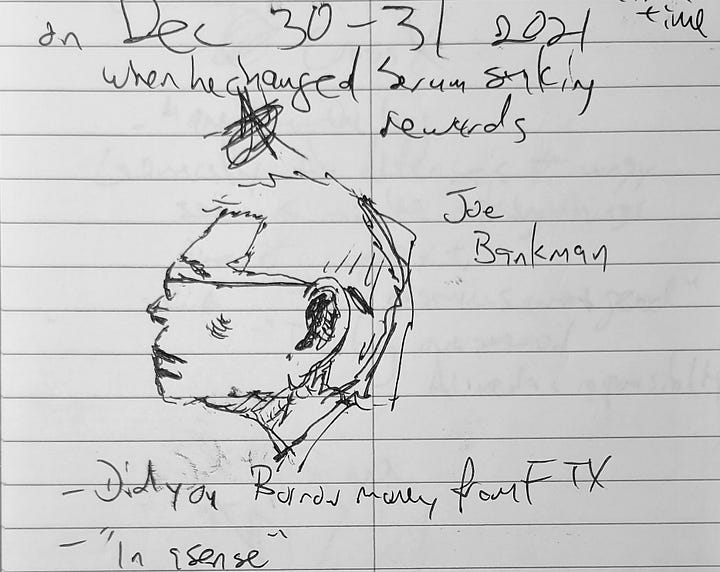 on Dec 30-31 2021
time
when he changed Serum staking
rewards
Joe
Bankman
- Did you Borrow money from FTX
- "In a sense"